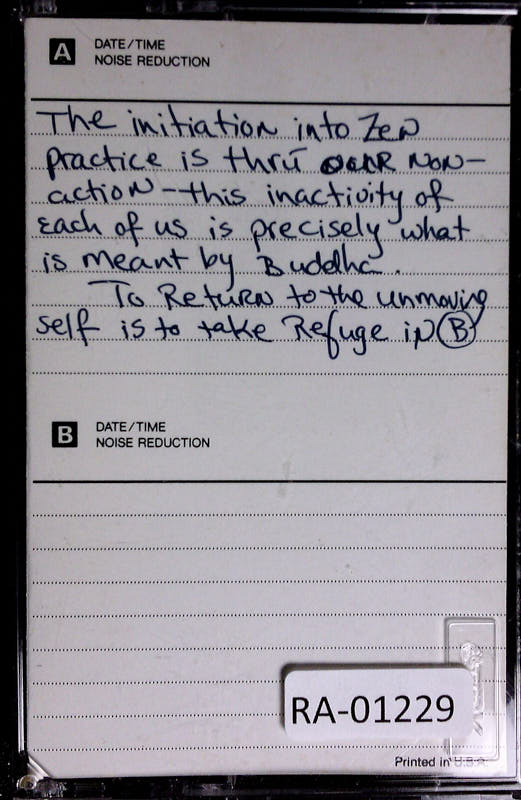 A DATE/TIME
NOISE REDUCTION
The initiation into Zen
practice is thru our non-
action - this inactivity of
each of us is precisely what
is meant by Buddha.
To Return to the unmoving
self is to take Refuge in B
B DATE/TIME
NOISE REDUCTION
RA-01229
Printed in U.S.A.